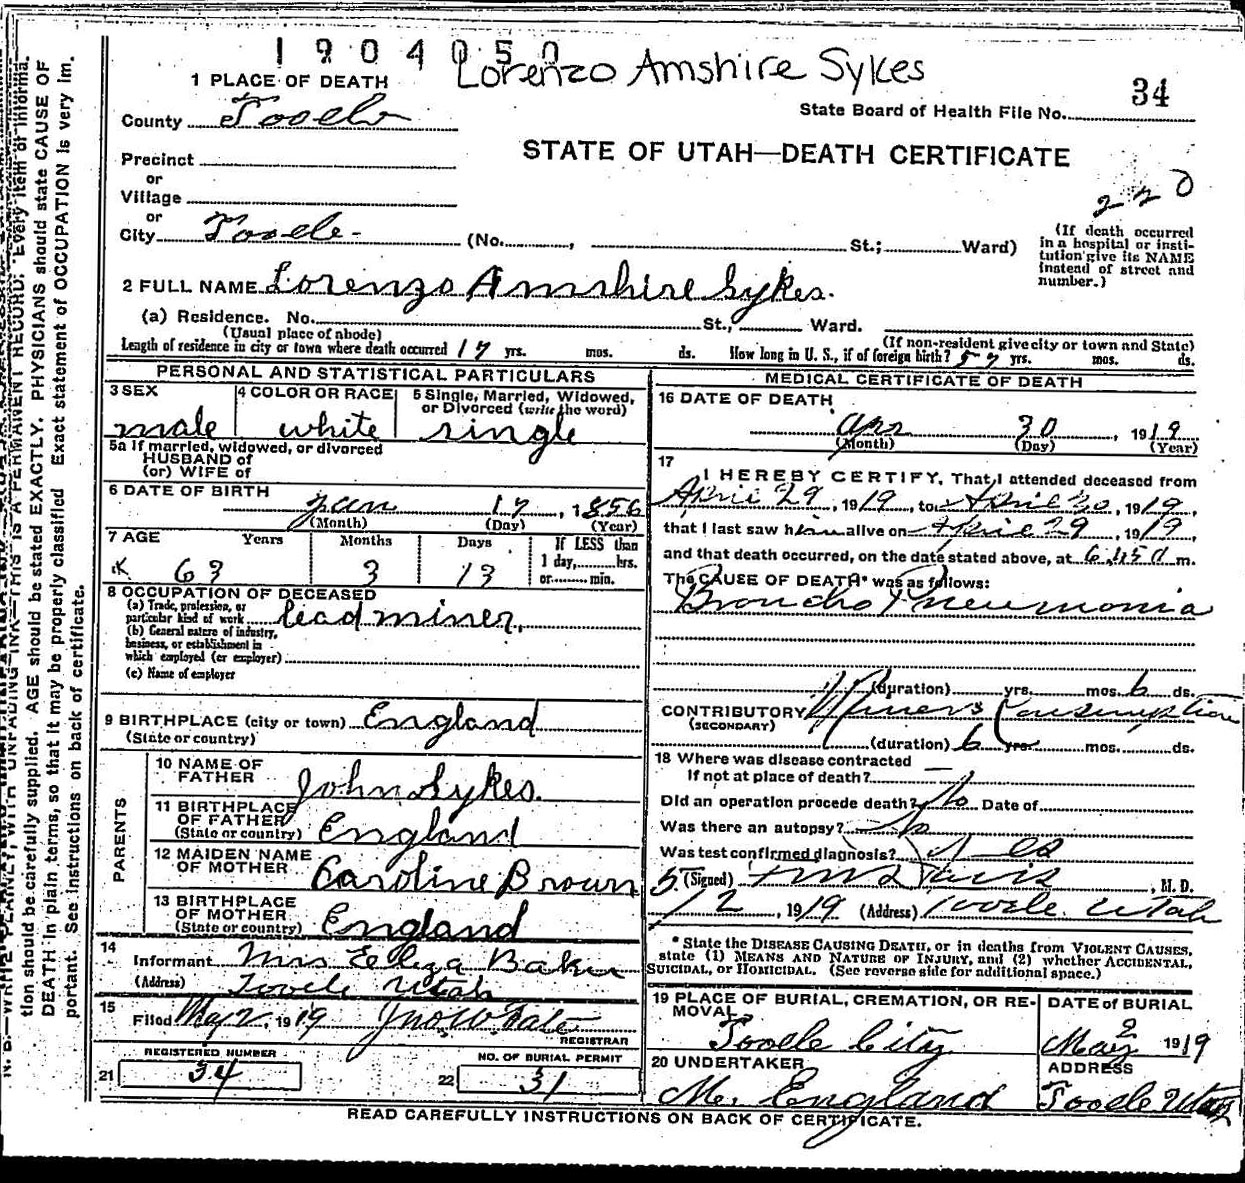 1904050
Lorenzo Amshire Sykes
1 PLACE OF DEATH
34
State Board of Health File No.
County Tooele
STATE OF UTAH—DEATH CERTIFICATE
Precinct
or
Village
220
or
City Tooele (No. , St.; Ward)
(If death occurred
in a hospital or insti-
tution give its NAME
instead of street and
number.)
2 FULL NAME Lorenzo Amshire Sykes.
(a) Residence. No. St., Ward.
(Usual place of abode)
(If non-resident give city or town and State)
Length of residence in city or town where death occurred 17 yrs. mos. ds. How long in U. S., if of foreign birth? 57 yrs. mos. ds.
PERSONAL AND STATISTICAL PARTICULARS
3 SEX
male
4 COLOR OR RACE
white
5 Single, Married, Widowed,
or Divorced (write the word)
single
5a If married, widowed, or divorced
HUSBAND of
(or) WIFE of
6 DATE OF BIRTH
Jan 17, 1856
(Month) (Day) (Year)
7 AGE Years Months Days
63 3 13
If LESS than
1 day, hrs.
or min.
8 OCCUPATION OF DECEASED
(a) Trade, profession, or
particular kind of work lead miner.
(b) General nature of industry,
business, or establishment in
which employed (or employer)
(c) Name of employer
9 BIRTHPLACE (city or town) England
(State or country)
PARENTS
10 NAME OF
FATHER John Sykes.
11 BIRTHPLACE
OF FATHER
(State or country) England
12 MAIDEN NAME
OF MOTHER Caroline Brown
13 BIRTHPLACE
OF MOTHER
(State or country) England
14
Informant Mrs Eliza Baker
(Address) Tooele Utah
15
Filed May 2, 1919 Jno W Tate
REGISTRAR
REGISTERED NUMBER
21 34
NO. OF BURIAL PERMIT
22 31
MEDICAL CERTIFICATE OF DEATH
16 DATE OF DEATH
Apr 30, 1919
(Month) (Day) (Year)
17
I HEREBY CERTIFY, That I attended deceased from
April 29, 1919, to April 30, 1919,
that I last saw him alive on April 29, 1919,
and that death occurred, on the date stated above, at 6.45 a m.
The CAUSE OF DEATH* was as follows:
Broncho Pneumonia
(duration) yrs. mos. 6 ds.
CONTRIBUTORY Miners Consumption
(SECONDARY)
(duration) 6 yrs mos. ds.
18 Where was disease contracted
If not at place of death?
Did an operation precede death? No Date of
Was there an autopsy? No
Was test confirmed diagnosis? Yes
(Signed) Davis, M. D.
5/2, 1919 (Address) Tooele Utah
* State the DISEASE CAUSING DEATH, or in deaths from VIOLENT CAUSES,
state (1) MEANS AND NATURE OF INJURY, and (2) whether ACCIDENTAL,
SUICIDAL, or HOMICIDAL. (See reverse side for additional space.)
19 PLACE OF BURIAL, CREMATION, OR RE-
MOVAL
Tooele City
DATE of BURIAL
May 2 1919
20 UNDERTAKER
M. England
ADDRESS
Tooele Utah
READ CAREFULLY INSTRUCTIONS ON BACK OF CERTIFICATE.
N. B.—WRITE PLAINLY WITH UNFADING INK—THIS IS A PERMANENT RECORD. Every item of informa-
tion should be carefully supplied. AGE should be stated EXACTLY. PHYSICIANS should state CAUSE OF
DEATH in plain terms, so that it may be properly classified. Exact statement of OCCUPATION is very im-
portant. See instructions on back of certificate.